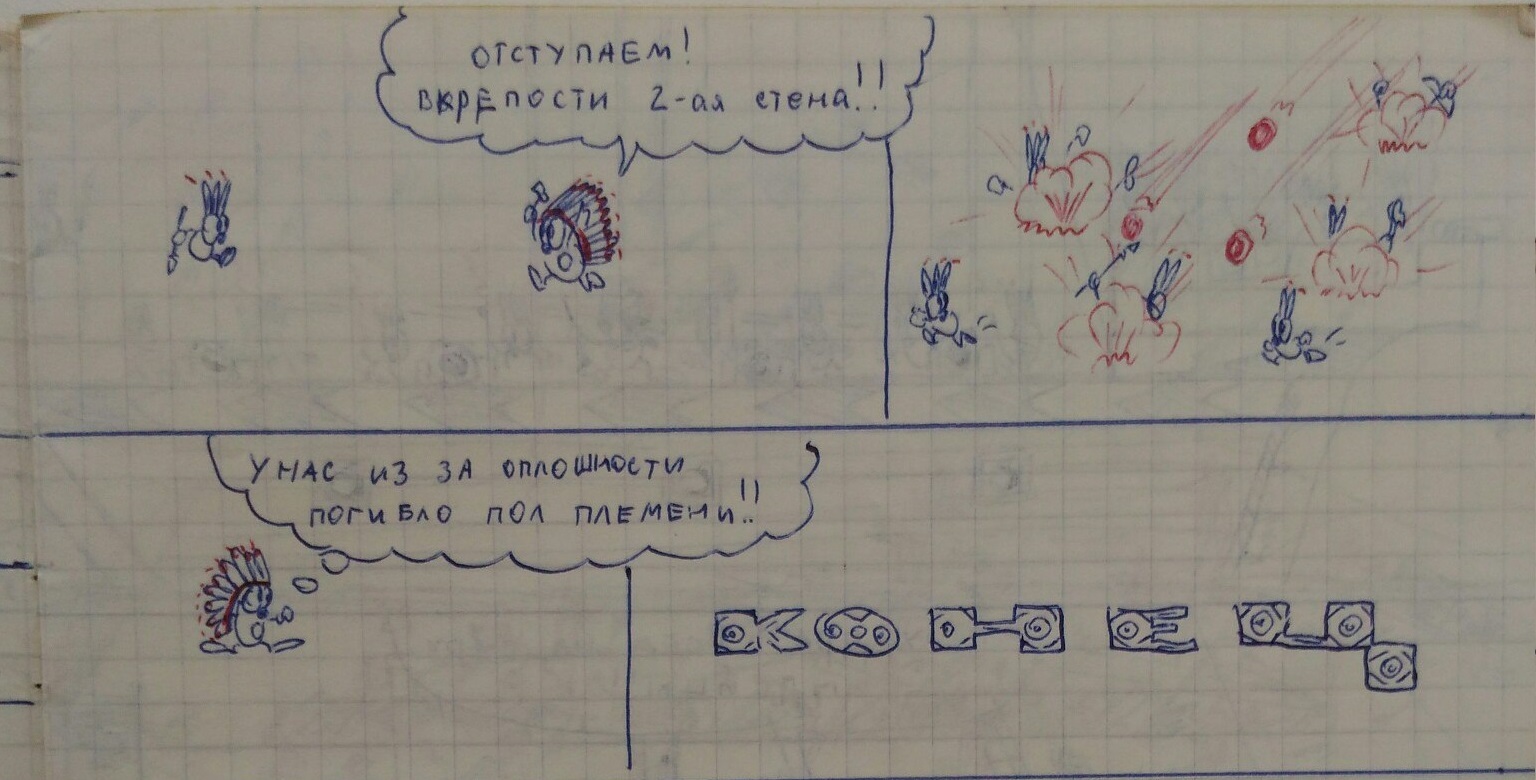 ОТСТУПАЕМ!
ВКРЕПОСТИ 2-ая стена!!
У НАС ИЗ ЗА ОПЛОШНОСТИ
ПОГИБЛО ПОЛ ПЛЕМЕНИ!!
КОНЕЦ